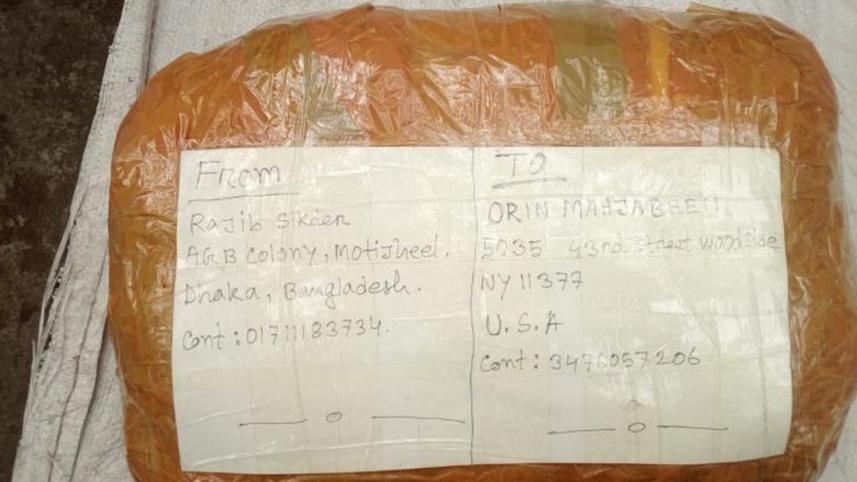 From
Rajib Sikder
AGB Colony, Motijheel.
Dhaka, Bangladesh.
Cont: 01711183734.
TO
ORIN MAHJABEEN
5035 43nd street woodside
NY 11377
U.S.A
Cont: 3476057206